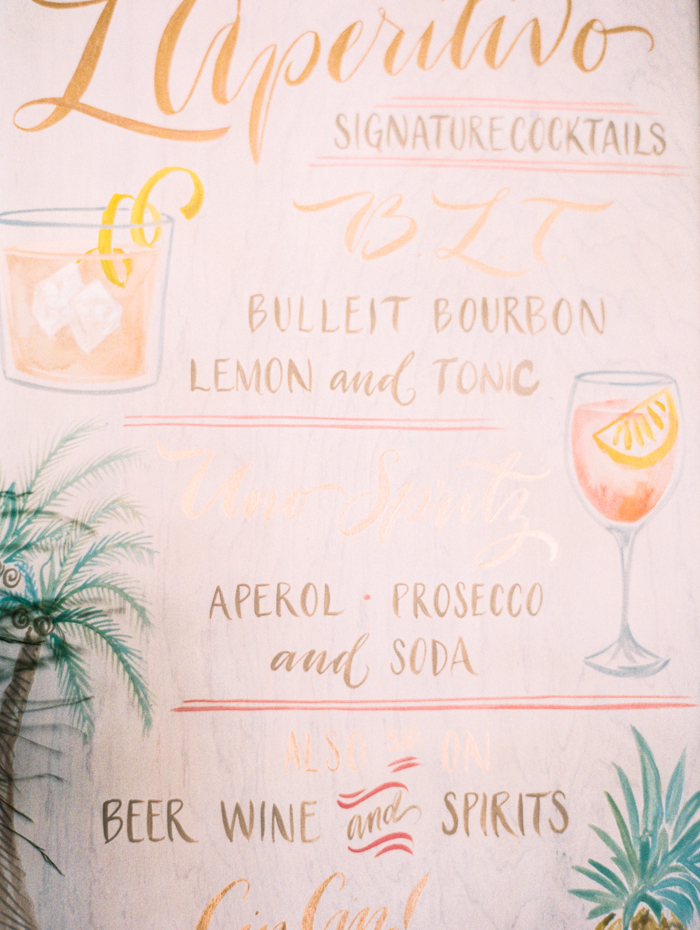 L'Aperitivo
SIGNATURE COCKTAILS
B.L.T.
BULLEIT BOURBON
LEMON and TONIC
Uno Spritz
APEROL · PROSECCO
and SODA
ALSO ON
BEER WINE and SPIRITS
Cin Cin!